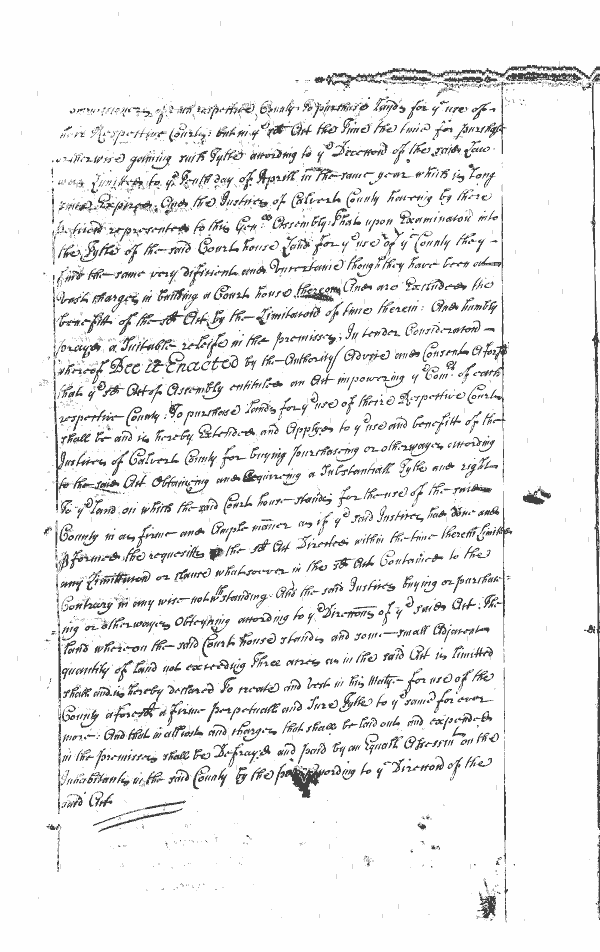 of each respective County to purchase Lands for yͤ use of
there Respective Courts: but in yͤ sᵈ Act the time
otherwise gaining such Tytle according to yͤ Direccon of the said Law
was Limitted to yͤ Tenth day of Aprill in the same year which is Long
since Expired, And the Justices of Calvert County haveing by there
petition represented to this Genˡˡ Assembly: That upon Examination into
the Tytle of the said Court house Land for yͤ use of yͤ County they
find the same very dificient and Uncertaine though they have been att
Vast charges in building a Court house thereon And are Excluded the
benefitt of the sᵈ Act by the Limitation of time therein: And humbly
prayed a Suitable releife in the premisses; In tender Consideration
whereof Bee it Enacted by the Authority Advice and Consent aforesᵈ
that yͤ sᵈ Act of Assembly entituled an Act impowering yͤ Comʳˢ of each
respective County: To purchase Lands for yͤ use of their Respective Courts
shall be and is hereby Extended and Applyed to yͤ use and benefitt of the
Justices of Calvert County for buying purchaseing or otherwayes according
to the said Act Obtaineing and Acquireing a Substantiall Tytle and right
To yͤ Land on which the said Court house stands for the use of the said
County in as firme and Ample manner as if yͤ said Justices had done and
pformed the requesitts the sᵈ Act Directed within the time therein Limitted
any Limitation or clause whatsoever in the sᵈ Act Contained to the
Contrary in any wise notwᵗʰstanding. And the said Justices buying or purchase
ing or otherwayes Obteyning according to yͤ Directions of yͤ said Act: The
Land whereon the said Court house stands and some small Adjacent
quantity of Land not exceeding Three acres as in the said Act is limitted
shall and is hereby declared To create and vest in his Matys for use of the
County aforesᵈ a firme perpetuall and Sure Tytle to yͤ same for ever
more: And that in all costs and charges that shall be laid out and expended
in the premisses shall be Defrayed and paid by an Equall Assessmᵗ on the
Inhabitants in the said County by the according to yͤ Direction of the
said Act